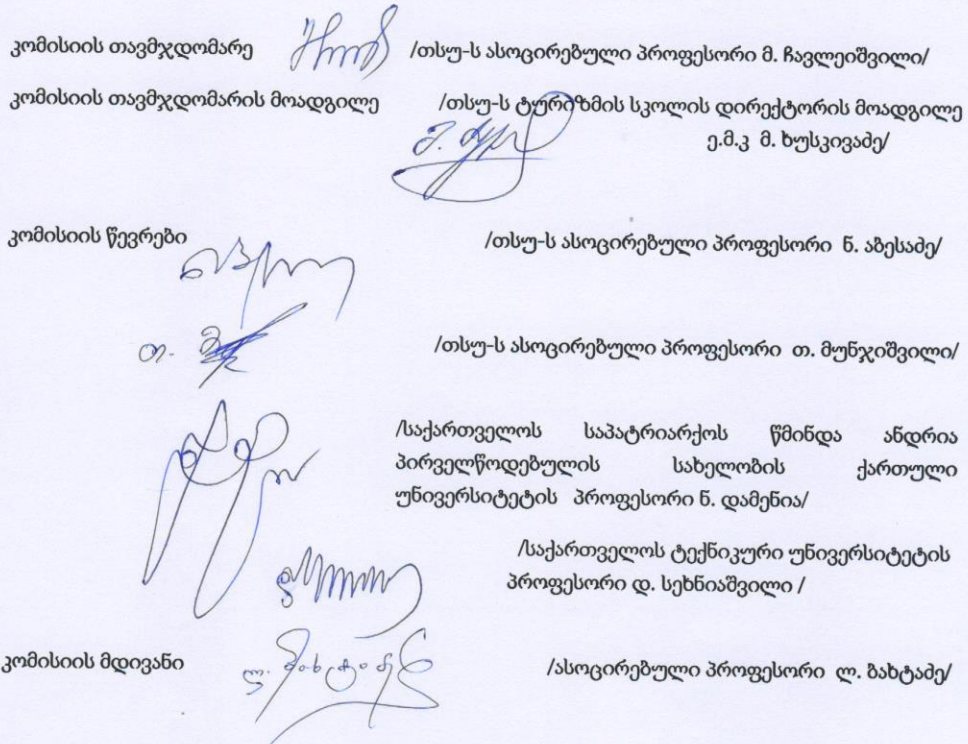 კომისიის თავმჯდომარე /თსუ-ს ასოცირებული პროფესორი მ. ჩავლეიშვილი/
კომისიის თავმჯდომარის მოადგილე /თსუ-ს ტურიზმის სკოლის დირექტორის მოადგილე
ე.მ.კ მ. ხუსკივაძე/
კომისიის წევრები /თსუ-ს ასოცირებული პროფესორი ნ. აბესაძე/
/თსუ-ს ასოცირებული პროფესორი თ. მუნჯიშვილი/
/საქართველოს საპატრიარქოს წმინდა ანდრია
პირველწოდებულის სახელობის ქართული
უნივერსიტეტის პროფესორი ნ. დამენია/
/საქართველოს ტექნიკური უნივერსიტეტის
პროფესორი დ. სეხნიაშვილი /
კომისიის მდივანი ლ. ბახტაძე /ასოცირებული პროფესორი ლ. ბახტაძე/